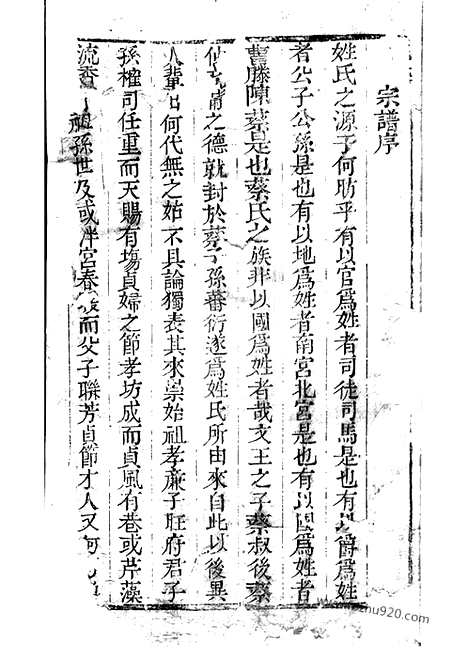 宗譜序
姓氏之源于何昉乎有以官爲姓者司徒司馬是也有以爵爲姓
者公子公孫是也有以地爲姓者南宮北宮是也有以國爲姓者
曹滕陳蔡是也蔡氏之族非以國爲姓者哉文王之子蔡叔後蔡
仲 之德就封於蔡子孫蕃衍遂爲姓氏所由來自此以後異
人輩出何代無之姑不具論獨表其來崇始祖孝亷子旺府君子
孫權司任重而天賜有塲貞婦之節孝坊成而貞風有巷或芹藻
流香 祖孫世及或泮宮春 而父子聯芳貞節才人又何
zhu920.com